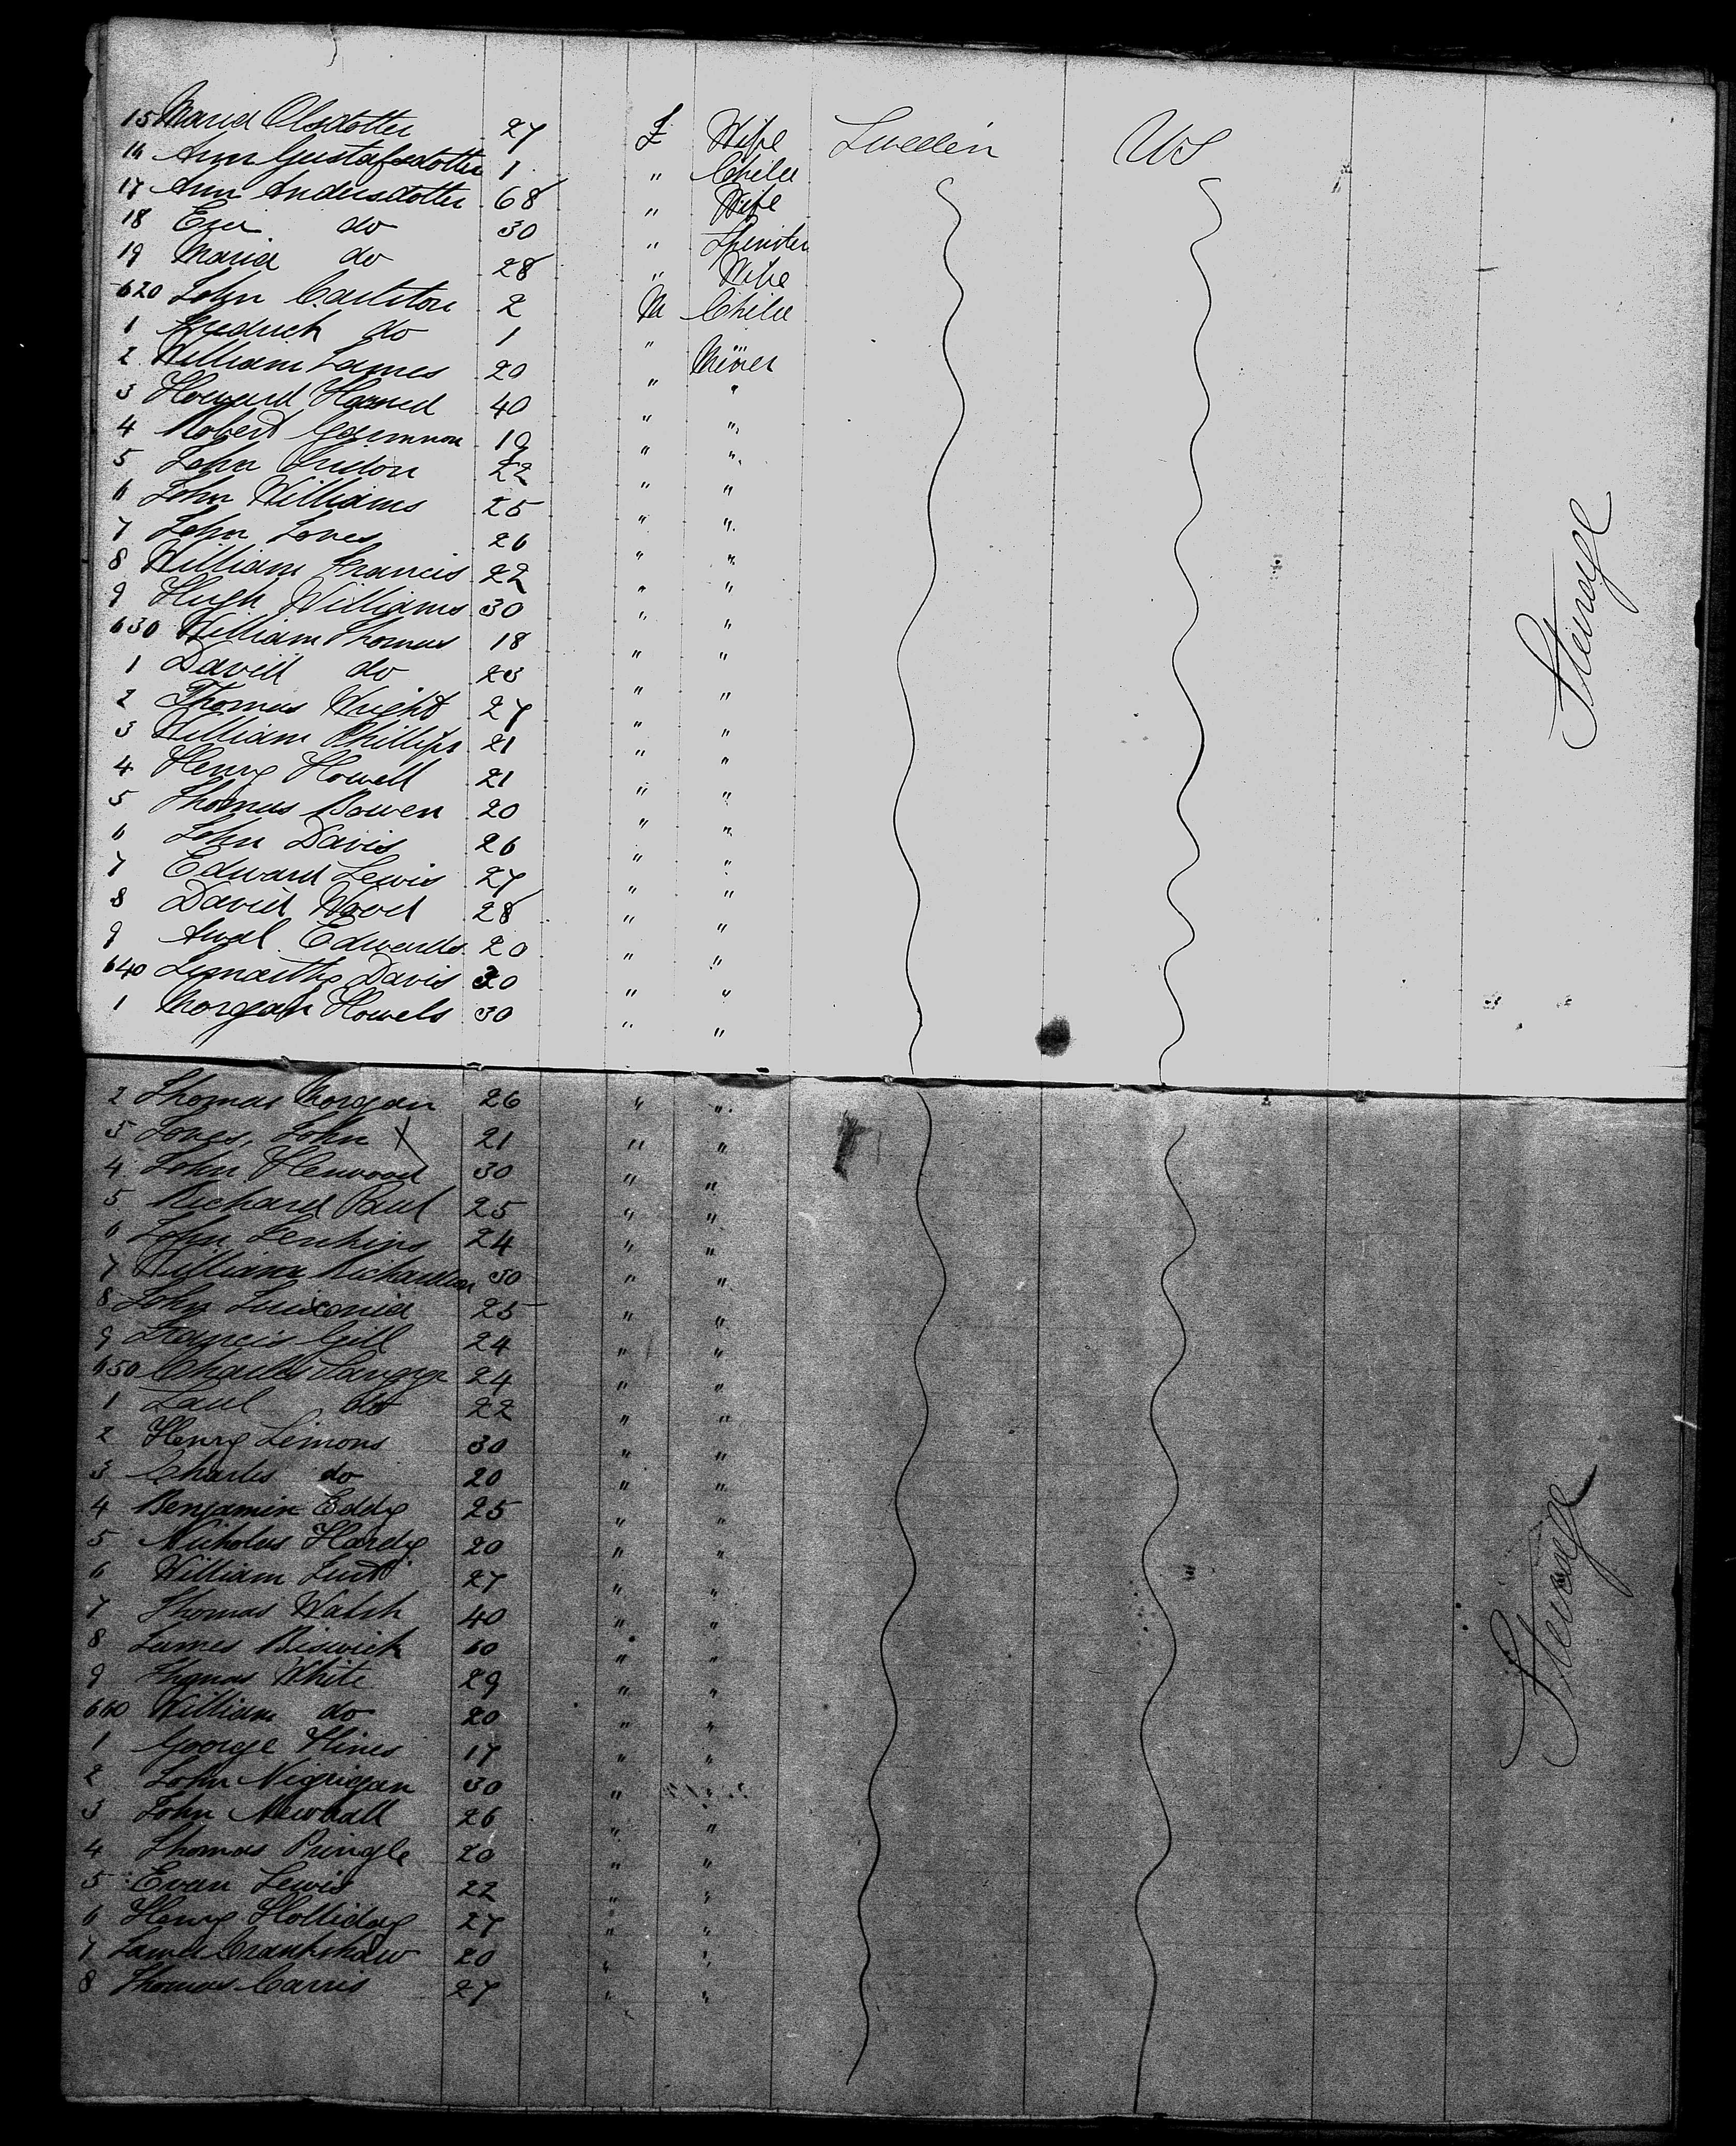 15 Maria Olsdotter 27 F Wife Sweden US
16 Ann Gustafsdotter 1 " Child
17 Ann Andersdotter 68 " Wife
18 do 30 " Spinster
19 Maria do 28 " Wife
620 John Carlston 2 M Child
1 Fredrick do 1 " "
2 William James 20 " Miner
3 Howard 40 " "
4 Robert 19 " "
5 John 22 " "
6 John Williams 25 " "
7 John Jones 26 " "
8 William Francis 22 " "
9 Hugh Williams 30 " "
630 William Thomas 18 " "
1 David do 23 " "
2 Thomas Wright 27 " "
3 William Phillips 21 " "
4 Henry Howell 21 " "
5 Thomas Bowen 20 " "
6 John Davis 26 " "
7 Edward Lewis 27 " "
8 David Wood 28 " "
9 Edwards 20 " "
640 Davis 30 " "
1 Morgan Howels 30 " "
Steerage
2 Thomas Morgan 26 " "
3 Jones, John X 21 " "
4 John Henwood 30 " "
5 Richard Paul 25 " "
6 John Jenkins 24 " "
7 William Richardson 30 " "
8 John 25 " "
9 Francis Gill 24 " "
650 Charles 24 " "
1 do 22 " "
2 Henry Simons 30 " "
3 Charles do 20 " "
4 Benjamin Eddy 25 " "
5 Nicholas Hardy 20 " "
6 William 27 " "
7 Thomas Walsh 40 " "
8 James Biswick 60 " "
9 Thomas White 29 " "
660 William do 20 " "
1 George Hines 17 " "
2 John 30 "
3 John Newball 26 " "
4 Thomas Pringle 20 " "
5 Evan Lewis 22 " "
6 Henry Holliday 27 " "
7 James Crankshaw 20 " "
8 Thomas Carris 27 " "
Steerage